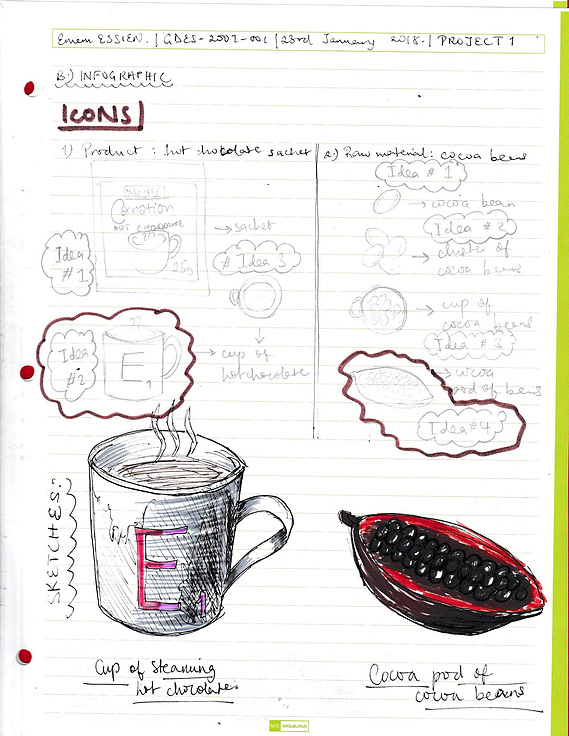 Emem ESSIEN. | GDES-2002-001 | 23rd January 2018. | PROJECT 1
B.) INFOGRAPHIC
ICONS
1) Product : hot chocolate sachet
Nestlé
Carnation
HOT CHOCOLATE
25g
→ sachet
Idea #1
# Idea 3
Idea #2
E1
→ cup of
hot chocolate
2.) Raw material: cocoa beans
Idea # 1
→ cocoa bean
Idea # 2
→ cluster of
cocoa beans
→ cup of
cocoa beans
Idea # 3
→ cocoa
pod of beans
Idea #4
SKETCHES:
E1
Cup of steaming
hot chocolate.
Cocoa pod of
cocoa beans
MIQUELRIUS